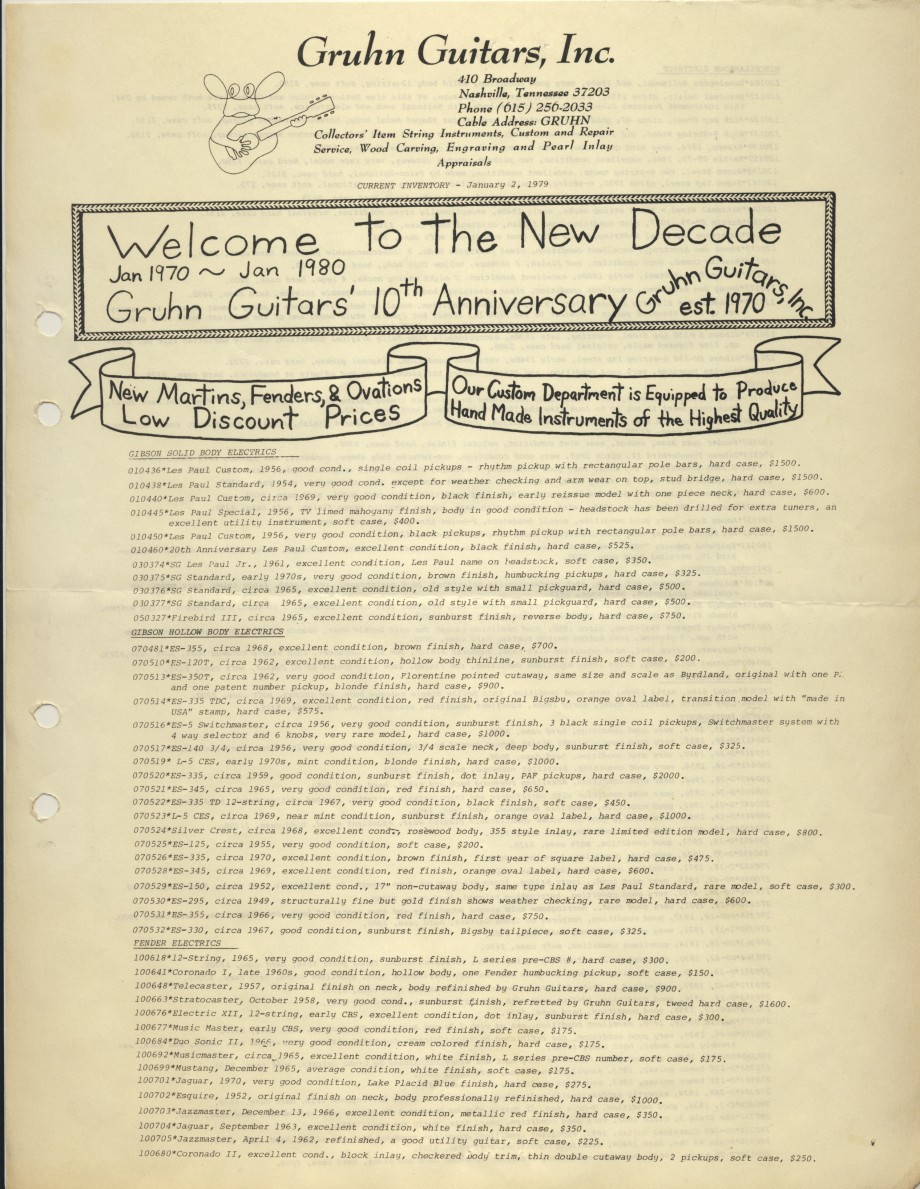 Gruhn Guitars, Inc.
410 Broadway
Nashville, Tennessee 37203
Phone (615) 256-2033
Cable Address: GRUHN
Collectors' Item String Instruments, Custom and Repair
Service, Wood Carving, Engraving and Pearl Inlay
Appraisals
CURRENT INVENTORY - January 2, 1979
Welcome to the New Decade
Jan 1970 ~ Jan 1980
Gruhn Guitars' 10th Anniversary
Gruhn Guitars, Inc.
est. 1970
New Martins, Fenders, & Ovations
Low Discount Prices
Our Custom Department is Equipped to Produce
Hand Made Instruments of the Highest Quality
GIBSON SOLID BODY ELECTRICS
010436*Les Paul Custom, 1956, good cond., single coil pickups - rhythm pickup with rectangular pole bars, hard case, $1500.
010438*Les Paul Standard, 1954, very good cond. except for weather checking and arm wear on top, stud bridge, hard case, $1500.
010440*Les Paul Custom, circa 1969, very good condition, black finish, early reissue model with one piece neck, hard case, $600.
010445*Les Paul Special, 1956, TV limed mahogany finish, body in good condition - headstock has been drilled for extra tuners, an
excellent utility instrument, soft case, $400.
010450*Les Paul Custom, 1956, very good condition, black pickups, rhythm pickup with rectangular pole bars, hard case, $1500.
010460*20th Anniversary Les Paul Custom, excellent condition, black finish, hard case, $525.
030374*SG Les Paul Jr., 1961, excellent condition, Les Paul name on headstock, soft case, $350.
030375*SG Standard, early 1970s, very good condition, brown finish, humbucking pickups, hard case, $325.
030376*SG Standard, circa 1965, excellent condition, old style with small pickguard, hard case, $500.
030377*SG Standard, circa 1965, excellent condition, old style with small pickguard, hard case, $500.
050327*Firebird III, circa 1965, excellent condition, sunburst finish, reverse body, hard case, $750.
GIBSON HOLLOW BODY ELECTRICS
070481*ES-355, circa 1968, excellent condition, brown finish, hard case, $700.
070510*ES-120T, circa 1962, excellent condition, hollow body thinline, sunburst finish, soft case, $200.
070513*ES-350T, circa 1962, very good condition, Florentine pointed cutaway, same size and scale as Byrdland, original with one
and one patent number pickup, blonde finish, hard case, $900.
070514*ES-335 TDC, circa 1969, excellent condition, red finish, original Bigsby, orange oval label, transition model with "made in
USA" stamp, hard case, $575.
070516*ES-5 Switchmaster, circa 1956, very good condition, sunburst finish, 3 black single coil pickups, Switchmaster system with
4 way selector and 6 knobs, very rare model, hard case, $1000.
070517*ES-140 3/4, circa 1956, very good condition, 3/4 scale neck, deep body, sunburst finish, soft case, $325.
070519* L-5 CES, early 1970s, mint condition, blonde finish, hard case, $1000.
070520*ES-335, circa 1959, good condition, sunburst finish, dot inlay, PAF pickups, hard case, $2000.
070521*ES-345, circa 1965, very good condition, red finish, hard case, $650.
070522*ES-335 TD 12-string, circa 1967, very good condition, black finish, soft case, $450.
070523*L-5 CES, circa 1969, near mint condition, sunburst finish, orange oval label, hard case, $1000.
070524*Silver Crest, circa 1968, excellent cond., rosewood body, 355 style inlay, rare limited edition model, hard case, $800.
070525*ES-125, circa 1955, very good condition, soft case, $200.
070526*ES-335, circa 1970, excellent condition, brown finish, first year of square label, hard case, $475.
070528*ES-345, circa 1969, excellent condition, red finish, orange oval label, hard case, $600.
070529*ES-150, circa 1952, excellent cond., 17" non-cutaway body, same type inlay as Les Paul Standard, rare model, soft case, $300.
070530*ES-295, circa 1949, structurally fine but gold finish shows weather checking, rare model, hard case, $600.
070531*ES-355, circa 1966, very good condition, red finish, hard case, $750.
070532*ES-330, circa 1967, good condition, sunburst finish, Bigsby tailpiece, soft case, $325.
FENDER ELECTRICS
100618*12-String, 1965, very good condition, sunburst finish, L series pre-CBS #, hard case, $300.
100641*Coronado I, late 1960s, good condition, hollow body, one Fender humbucking pickup, soft case, $150.
100648*Telecaster, 1957, original finish on neck, body refinished by Gruhn Guitars, hard case, $900.
100663*Stratocaster, October 1958, very good cond., sunburst finish, refretted by Gruhn Guitars, tweed hard case, $1600.
100676*Electric XII, 12-string, early CBS, excellent condition, dot inlay, sunburst finish, hard case, $300.
100677*Music Master, early CBS, very good condition, red finish, soft case, $175.
100684*Duo Sonic II, 1966, very good condition, cream colored finish, hard case, $175.
100692*Musicmaster, circa 1965, excellent condition, white finish, L series pre-CBS number, soft case, $175.
100699*Mustang, December 1965, average condition, white finish, soft case, $175.
100701*Jaguar, 1970, very good condition, Lake Placid Blue finish, hard case, $275.
100702*Esquire, 1952, original finish on neck, body professionally refinished, hard case, $1000.
100703*Jazzmaster, December 13, 1966, excellent condition, metallic red finish, hard case, $350.
100704*Jaguar, September 1963, excellent condition, white finish, hard case, $350.
100705*Jazzmaster, April 4, 1962, refinished, a good utility guitar, soft case, $225.
100680*Coronado II, excellent cond., block inlay, checkered body trim, thin double cutaway body, 2 pickups, soft case, $250.